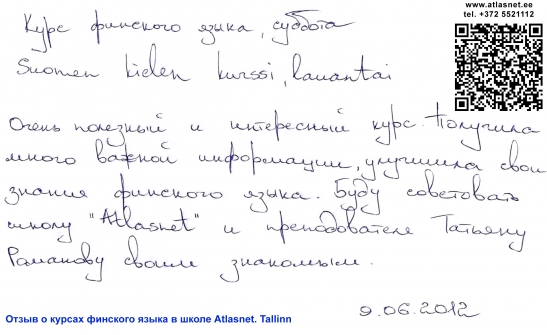 www.atlasnet.ee
tel. +372 5521112
Курс финского языка, суббота
Suomen kielen kurssi, lauantai
Очень полезный и интересный курс. Получила
много важной информации, улучшила свои
знания финского языка. Буду советовать
школу "Atlasnet" и преподователя Татьяну
Романову своим знакомым.
9.06.2012
Отзыв о курсах финского языка в школе Atlasnet. Tallinn